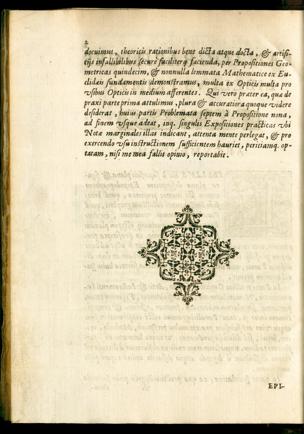 2
docuimus, theoricis rationibus bene dicta atque docta, & artifi-
cijs infallibilibus securè faciliter q; facienda, per Propositiones Geo-
metricas quindecim, & nonnulla lemmata Mathematicè ex Eu-
clideis fundamentis demonstramus, multa ex Opticis multa pro
vsibus Opticis in medium afferentes. Qui verò præter ea, quæ de
praxi parte prima attulimus, plura & accuratiora quoque videre
desiderat, huius partis Problemata septem à Propositione nona,
ad finem vsque adeat, inq. singulis Expositiones practicas vbi
Notæ marginales illas indicant, attenta mente perlegat, & pro
exercendo vsu instructionem sufficientem hauriet, peritiamq. op-
tatam, nisi me mea fallit opinio, reportabit.
EPI-